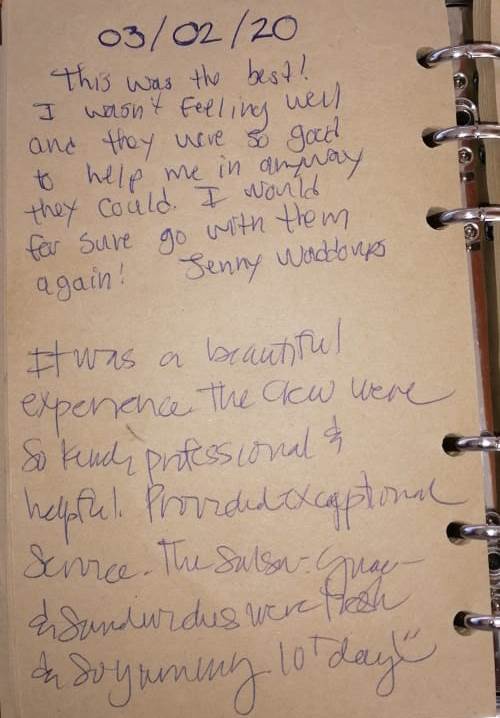 03/02/20
This was the best!
I wasn't feeling well
and they were so good
to help me in anyway
they could. I would
for sure go with them
again! Jenny Waddoups
It was a beautiful
experience. The crew were
so kind, professional &
helpful. Provided exceptional
service. The salsa - guac -
& sandwiches were fresh
& so yummy 10+ day!"